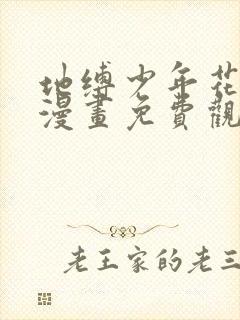 地缚少年花
漫畫免費觀
老王家的老三